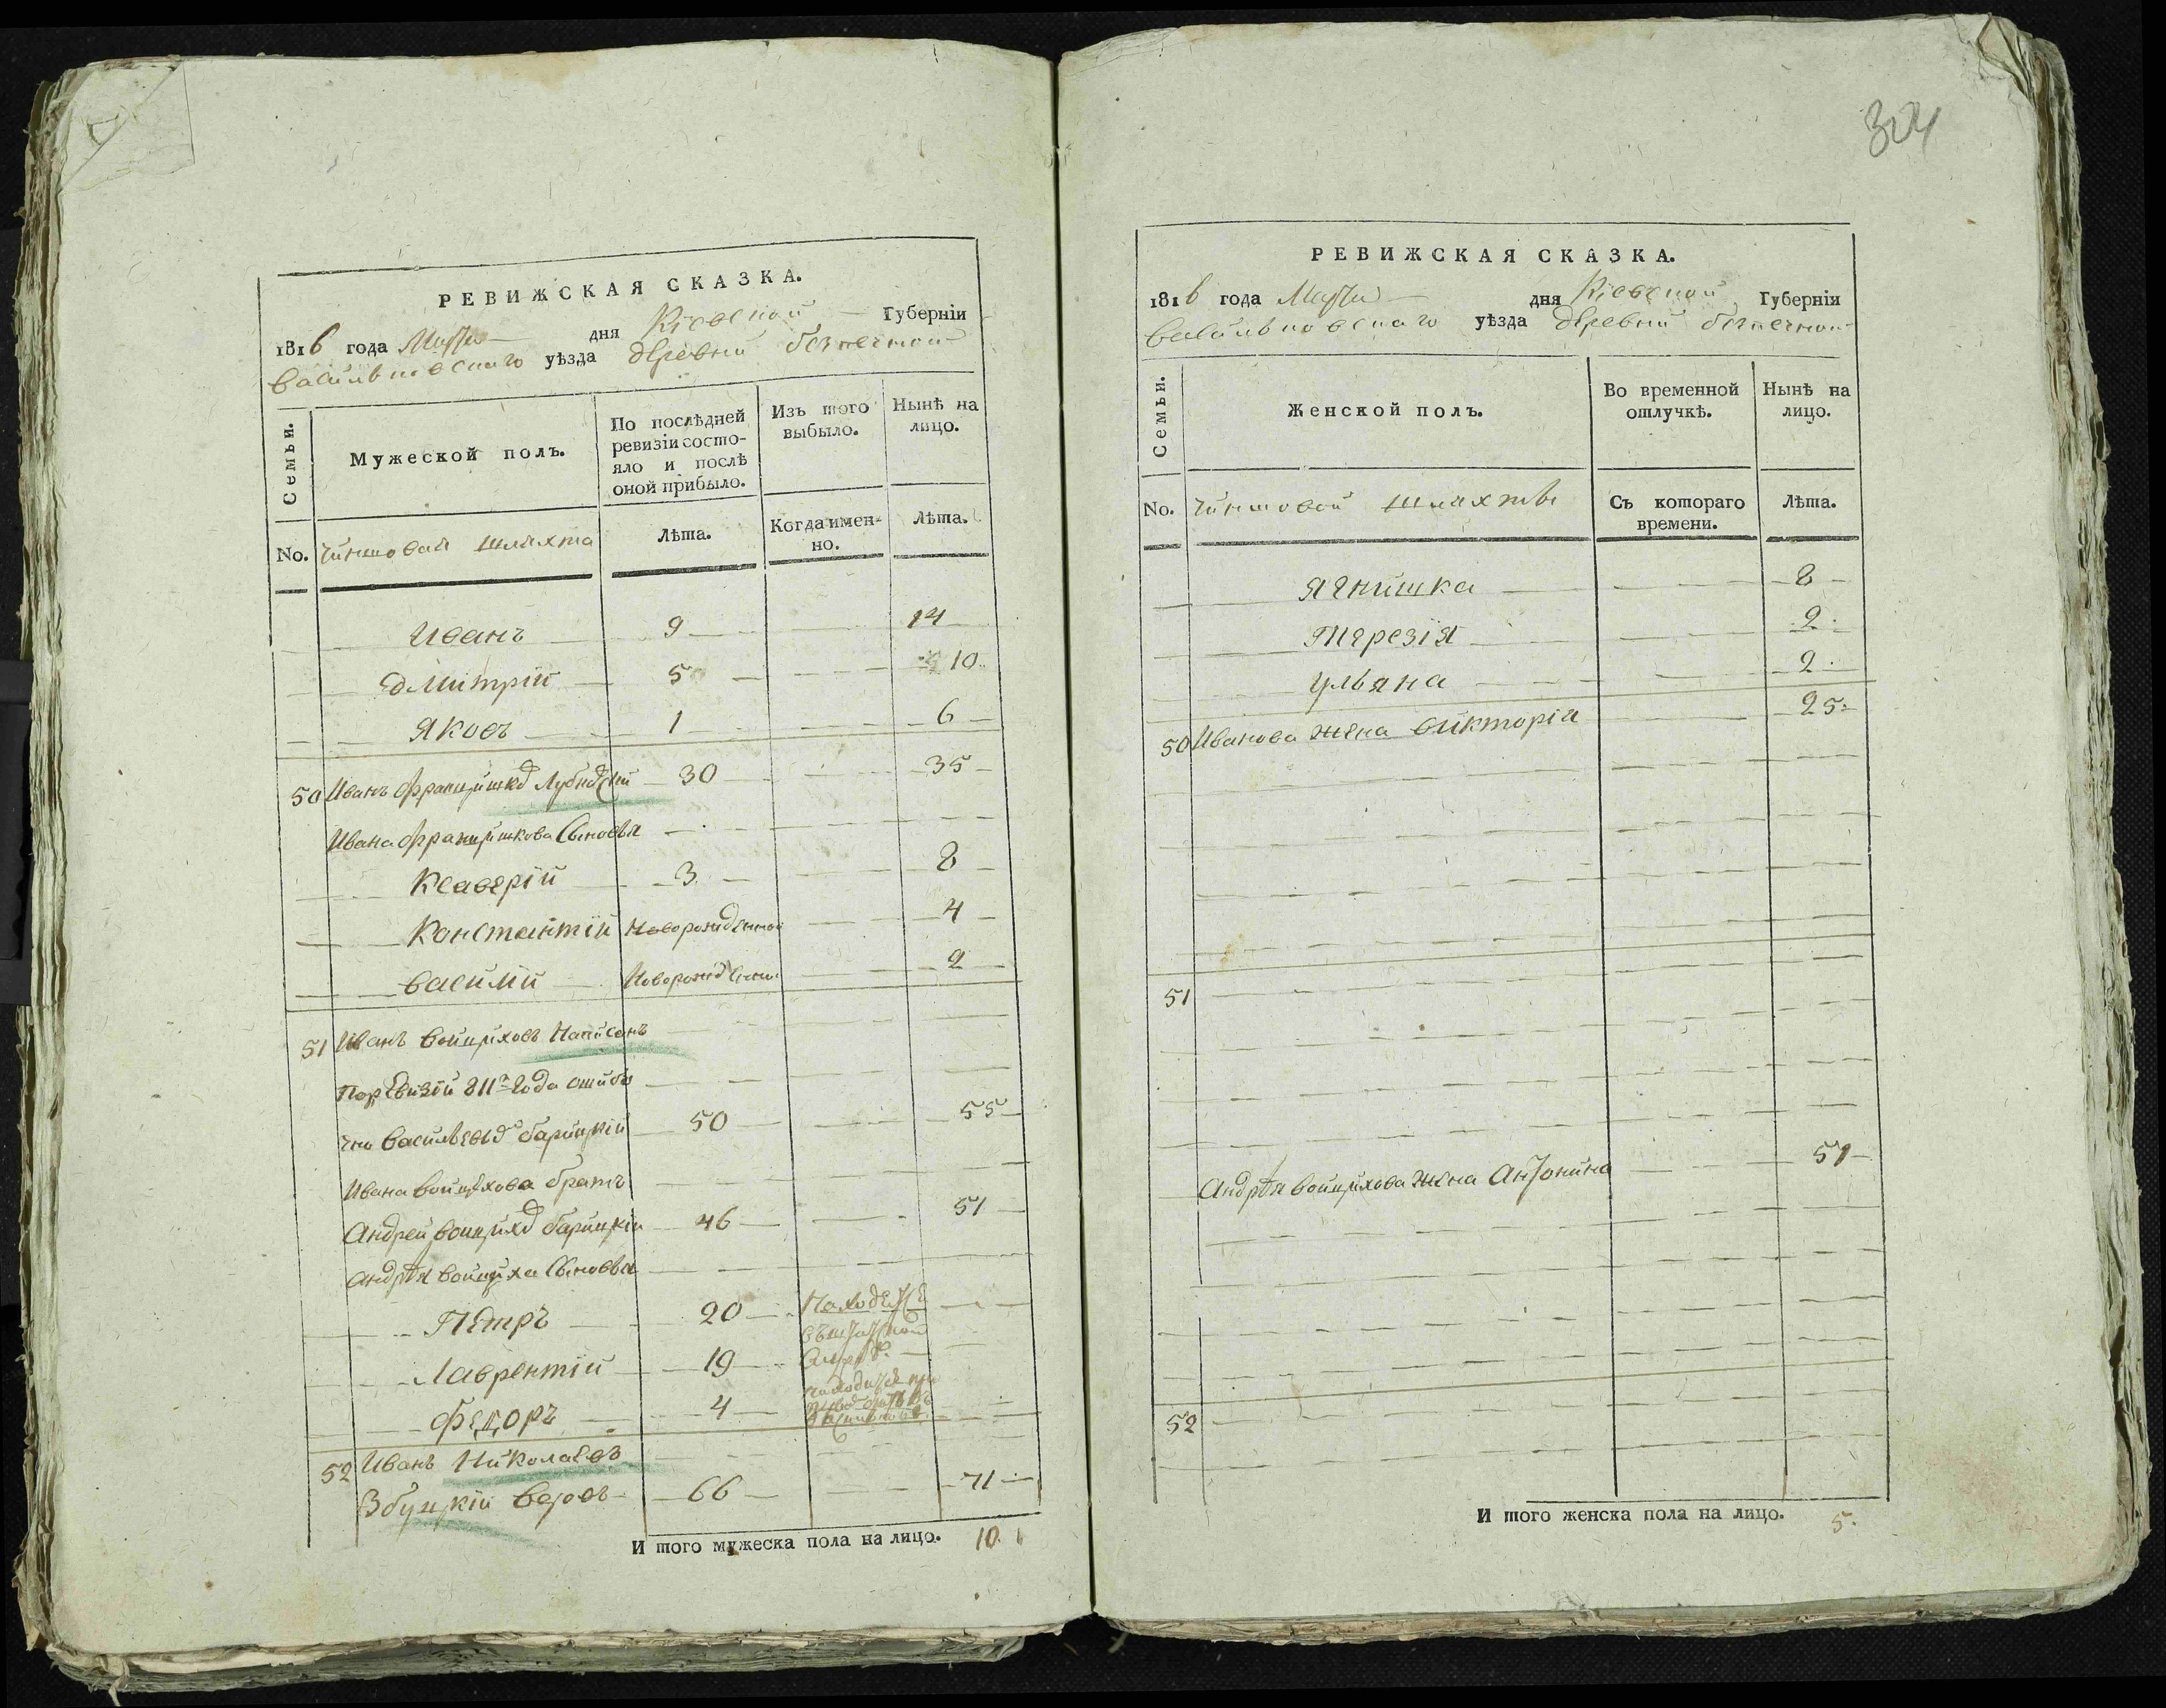 РЕВИЖСКАЯ СКАЗКА.
1816 года Марта дня Кіевской Губерніи
васильковскаго уѣзда деревни безпечной
Семьи.
Мужеской полъ.
По послѣдней ревизіи состо-
яло и послѣ
оной прибыло.
Изъ того
выбыло.
Нынѣ на
лицо.
No. Чиншовая шляхта
Лѣта.
Когда имен-
но.
Лѣта.
Иванъ 9 14
Дмитрій 5 10
Яковъ 1 6
50 Иванъ Францишковъ 30 35
Ивана Францишкова Сыновья
Ксаверій 3 8
Константій Новорожденной 4
Василій Новорожденной 2
51 Иванъ Войциховъ Написанъ
По ревизіи 811го года ошибо
чно Васильевымъ барицкій 50 55
Ивана войцѣхова братъ
Андрей войциховъ барицкій 46 51
Андрѣя войциха Сыновья
Петръ 20
Лаврентій 19
Федоръ 4
52 Иванъ Николаевъ
Збуцкій 66 71
И того мужеска пола на лицо. 10
324
РЕВИЖСКАЯ СКАЗКА.
1816 года Марта дня Кіевской Губерніи
васильковскаго уѣзда деревни безпечной
Семьи.
Женской полъ.
Во временной
отлучкѣ.
Нынѣ на
лицо.
No. Чиншовой шляхты
Съ котораго
времени.
Лѣта.
Ягнишка 8
Терезія 2
Ульяна 2
50 Иванова жена Викторія 25
51
Андрѣя войцихова жена Антонина 51
52
И того женска пола на лицо. 5.